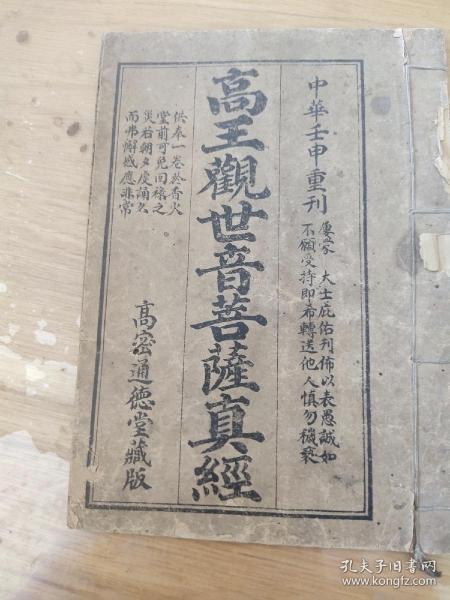 中華壬申重刊
屢蒙 大士庇佑刋佈以表愚誠如
不願受持即希轉送他人慎勿穢褻
高王觀世音菩薩真經
供奉一卷於香火
堂前可免回祿之
災若朝夕虔誦久
而弗懈感應非常
高密通德堂藏版
孔夫子旧书网
www.kongfz.com